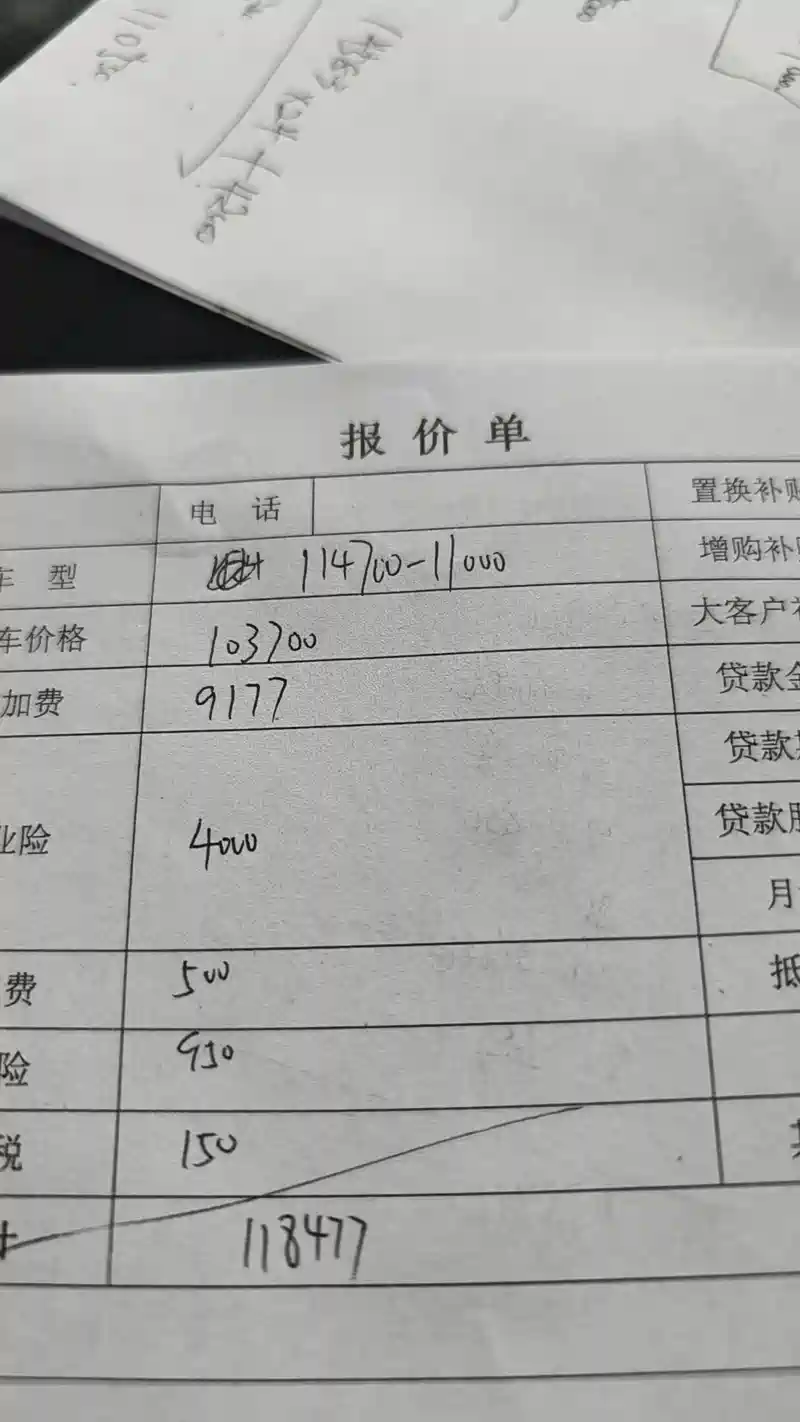 报价单
电 话 置换补贴
车 型 114700-11000 增购补贴
车价格 103700 大客户
加费 9177 贷款金
贷款
业险 4000 贷款
月
费 500 抵
险 950
税 150
118477